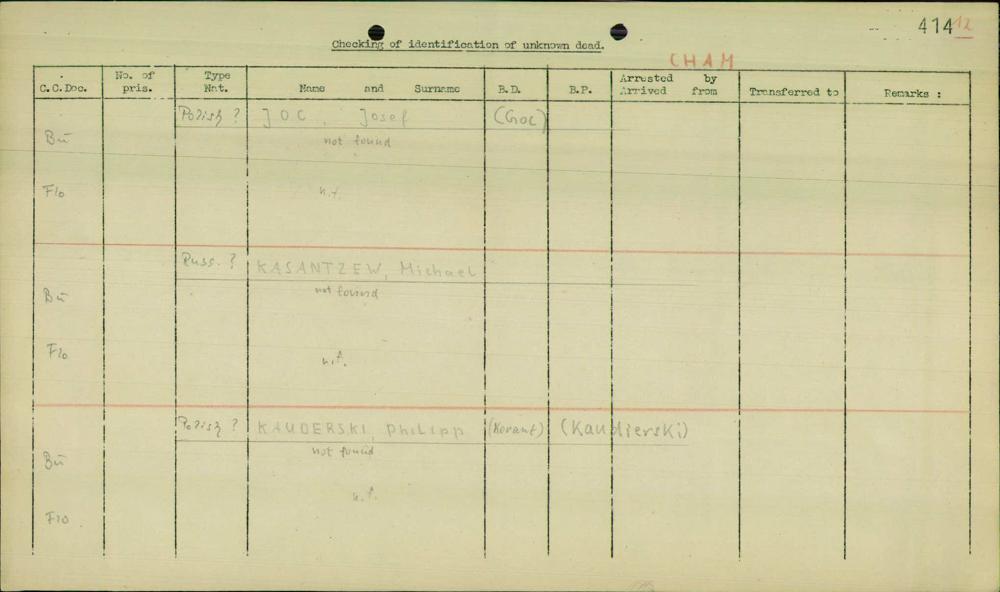 414 12
Checking of identification of unknown dead.
CHAM
C.C.Doc. No. of pris. Type Nat. Name and Surname B.D. B.P. Arrested by Arrived from Transferred to Remarks :
Polish ? JOC, Josef (Goc)
Bu not found
Flo n.f.
Russ. ? KASANTZEW, Michael
Bu not found
Flo n.f.
Polish ? KAUDERSKI, Philipp (Korant) (Kaudierski)
Bu not found
Flo n.f.